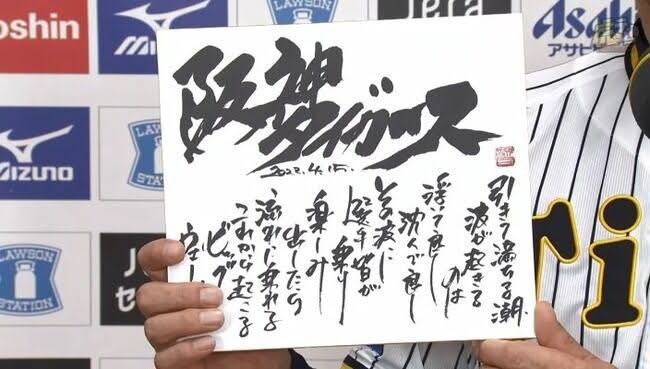 oshin
LAWSON
Jera
Asah
アサヒビ
MIZUNO
LAWSON
STATION
LAWSON
STATION
セ
阪神
タイガース
引きて満ちる潮
波が起きる
のは
浮いて良し
沈んで良し
その波に
選手皆が
乗り
楽しみ
出したら
流れに乗れる
これから起こる
ビッグ
ウェー
ri